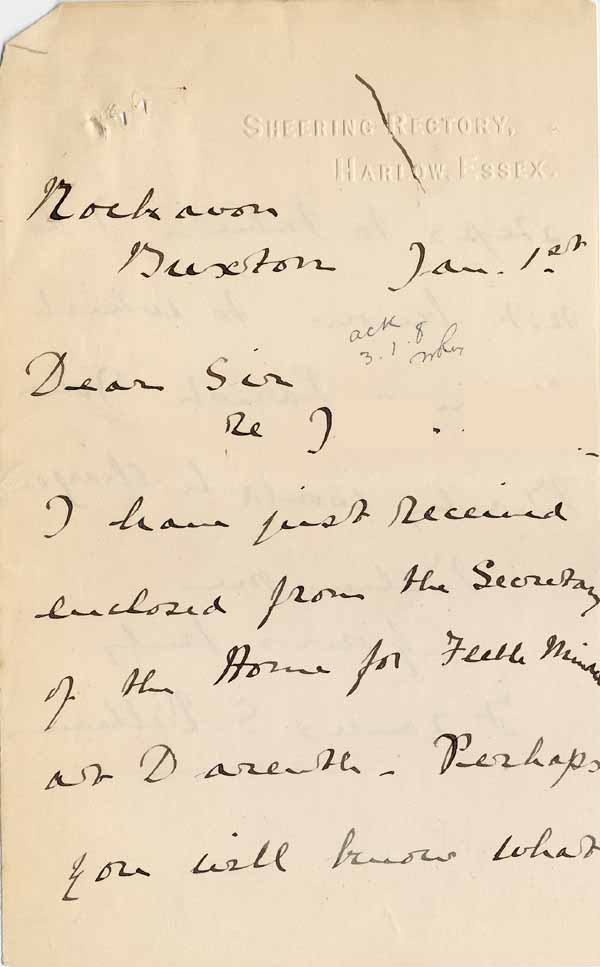 SHEERING RECTORY,
HARLOW, ESSEX.
Rockavon
Buxton Jan. 1st
ack
3.1.8
Dear Sir
re J
I have just received
enclosed from the Secretary
of the Home for Feeble Minded
at Darenth - Perhaps
you will know what